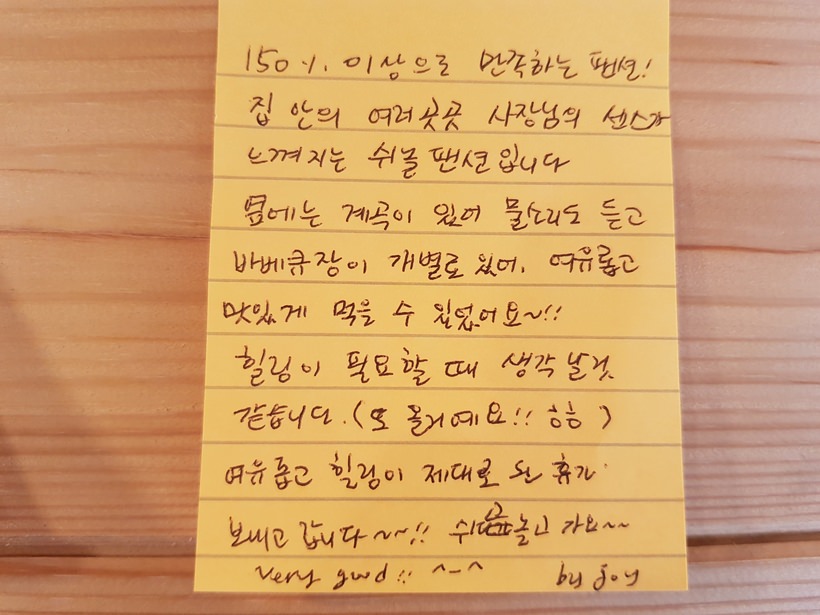 150%. 이상으로 만족하는 팬션!
집 안의 여러곳곳 사장님의 센스가
느껴지는 쉬놀팬션입니다
옆에는 계곡이 있어 물소리도 듣고
바베큐장이 개별로 있어, 여유롭고
맛있게 먹을 수 있었어요~!!
힐링이 필요할 때 생각날것
같습니다.(또 올거예요!! ㅎㅎ)
여유롭고 힐링이 제대로 된 휴가
보내고 갑니다~~!! 쉬고놀고 가요~~
Very good!! ^-^ by joy